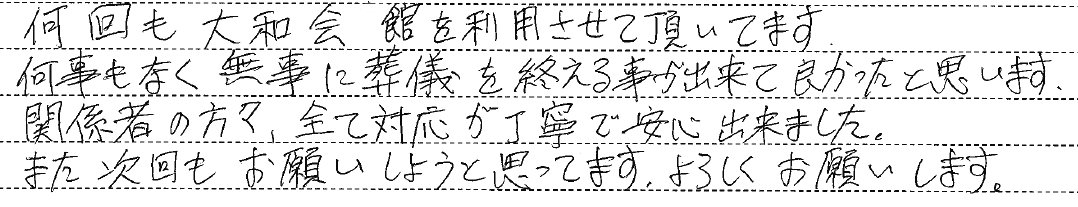 何回も大和会館を利用させて頂いてます.
何事もなく無事に葬儀を終える事が出来て良かったと思います.
関係者の方々、全て対応が丁寧で安心出来ました。
また次回もお願いしようと思ってます.よろしくお願いします。